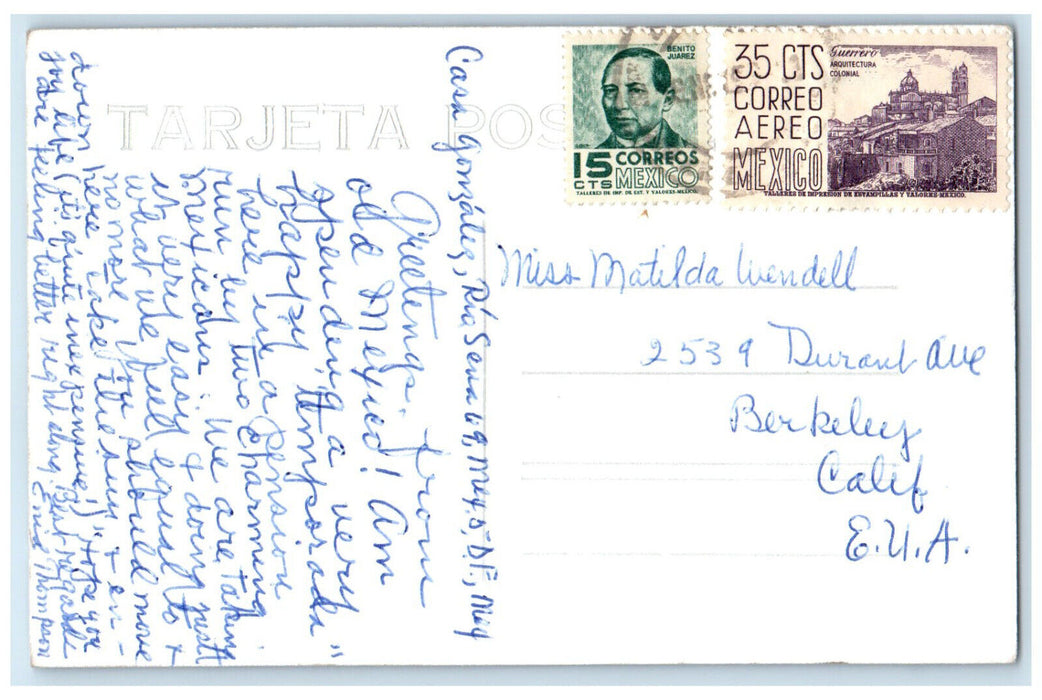 TARJETA POS
BENITO
JUAREZ
15 CORREOS
CTS MEXICO
TALLERES DE IMP. DE EST. Y VALORES-MEXICO.
35 CTS
CORREO
AEREO
MEXICO
Guerrero
ARQUITECTURA
COLONIAL
TALLERES DE IMPRESION DE ESTAMPILLAS Y VALORES-MEXICO.
Casa González, Río Sena 69, Mex. 5, D.F., Mex
Greetings from
old Mexico! Am
spending a very
happy "temporada"
here in a pension
run by two charming
Mexicans. We are taking
it very easy & doing just
what we feel equal to &
no more. You should move
down here, take the sun & en-
joy life (tis quite inexpensive!) Hope you
are feeling better right along. Best regards
Enid Thompson
Miss Matilda Wendell
2539 Durant Ave
Berkeley
Calif
E.U.A.